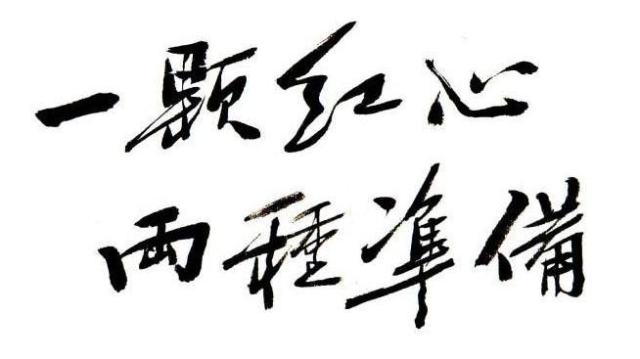 一颗红心
两種準備